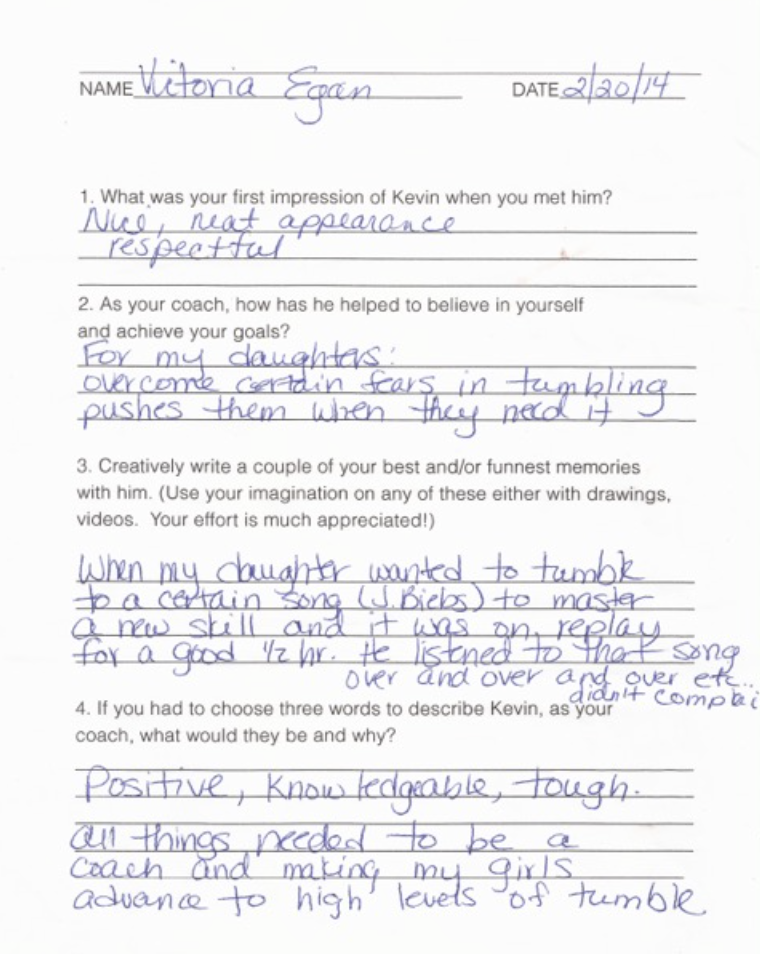 NAME Victoria Egan DATE 2/20/14
1. What was your first impression of Kevin when you met him?
Nice, neat appearance
respectful
2. As your coach, how has he helped to believe in yourself
and achieve your goals?
For my daughters:
overcome certain fears in tumbling
pushes them when they need it
3. Creatively write a couple of your best and/or funnest memories
with him. (Use your imagination on any of these either with drawings,
videos. Your effort is much appreciated!)
When my daughter wanted to tumble
to a certain song (J. Biebs) to master
a new skill and it was on replay
for a good 1/2 hr. He listened to that song
over and over and over etc..
didn't complai
4. If you had to choose three words to describe Kevin, as your
coach, what would they be and why?
Positive, Knowledgeable, tough.
all things needed to be a
coach and making my girls
advance to high levels of tumble